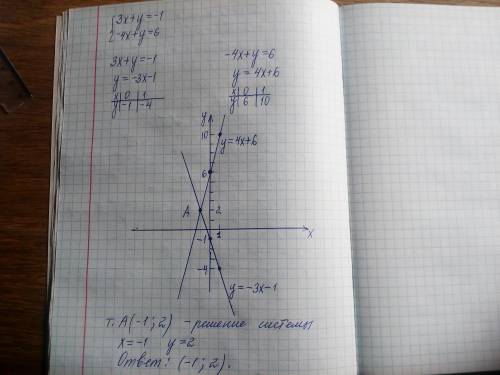 {3x+y=-1
-4x+y=6
3x+y=-1
y=-3x-1
x 0 1
y -1 -4
-4x+y=6
y=4x+6
x 0 1
y 6 10
y
10
y=4x+6
6
A 2
-1 1 x
-4
y=-3x-1
т. A(-1; 2) - решение системы
x=-1 y=2
Ответ: (-1; 2).